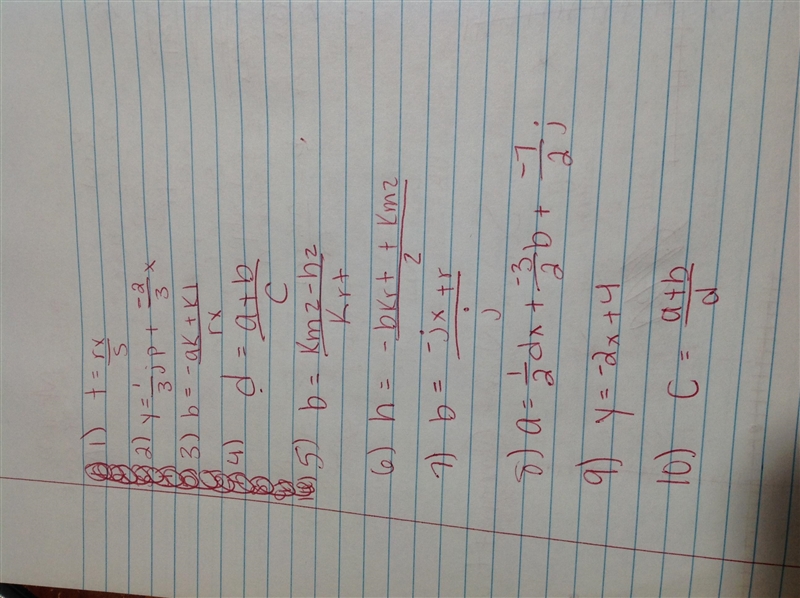 1) t = rx/5
2) y = 1/3 jp + -2/3 x
3) b = -ak + k1/rx
4) d = a+b/c
5) b = kmz-hz/krt
6) h = -bkrt + kmz/z
7) b = -jx+r/j
8) a = 1/2 dx + -3/2 b + -1/2 j
9) y = -2x+4
10) c = a+b/d